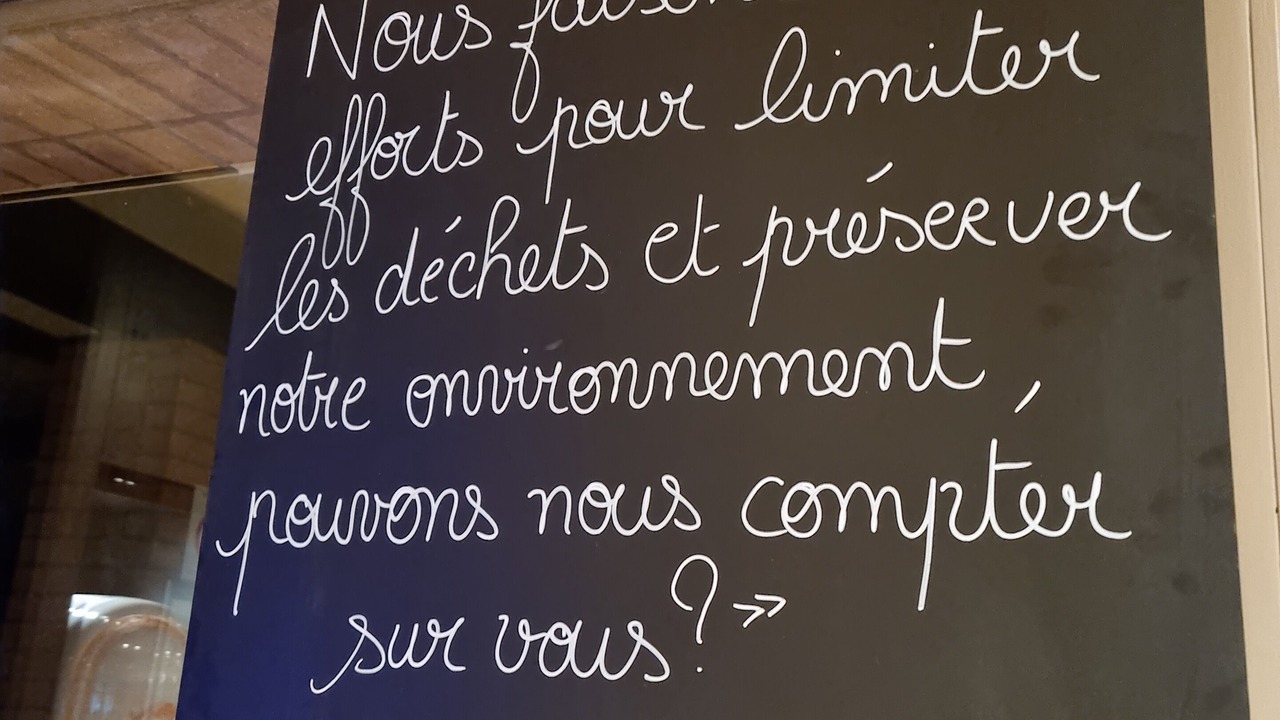 Nous
efforts pour limiter
les déchets et préserver
notre environnement,
pouvons nous compter
sur vous ? »